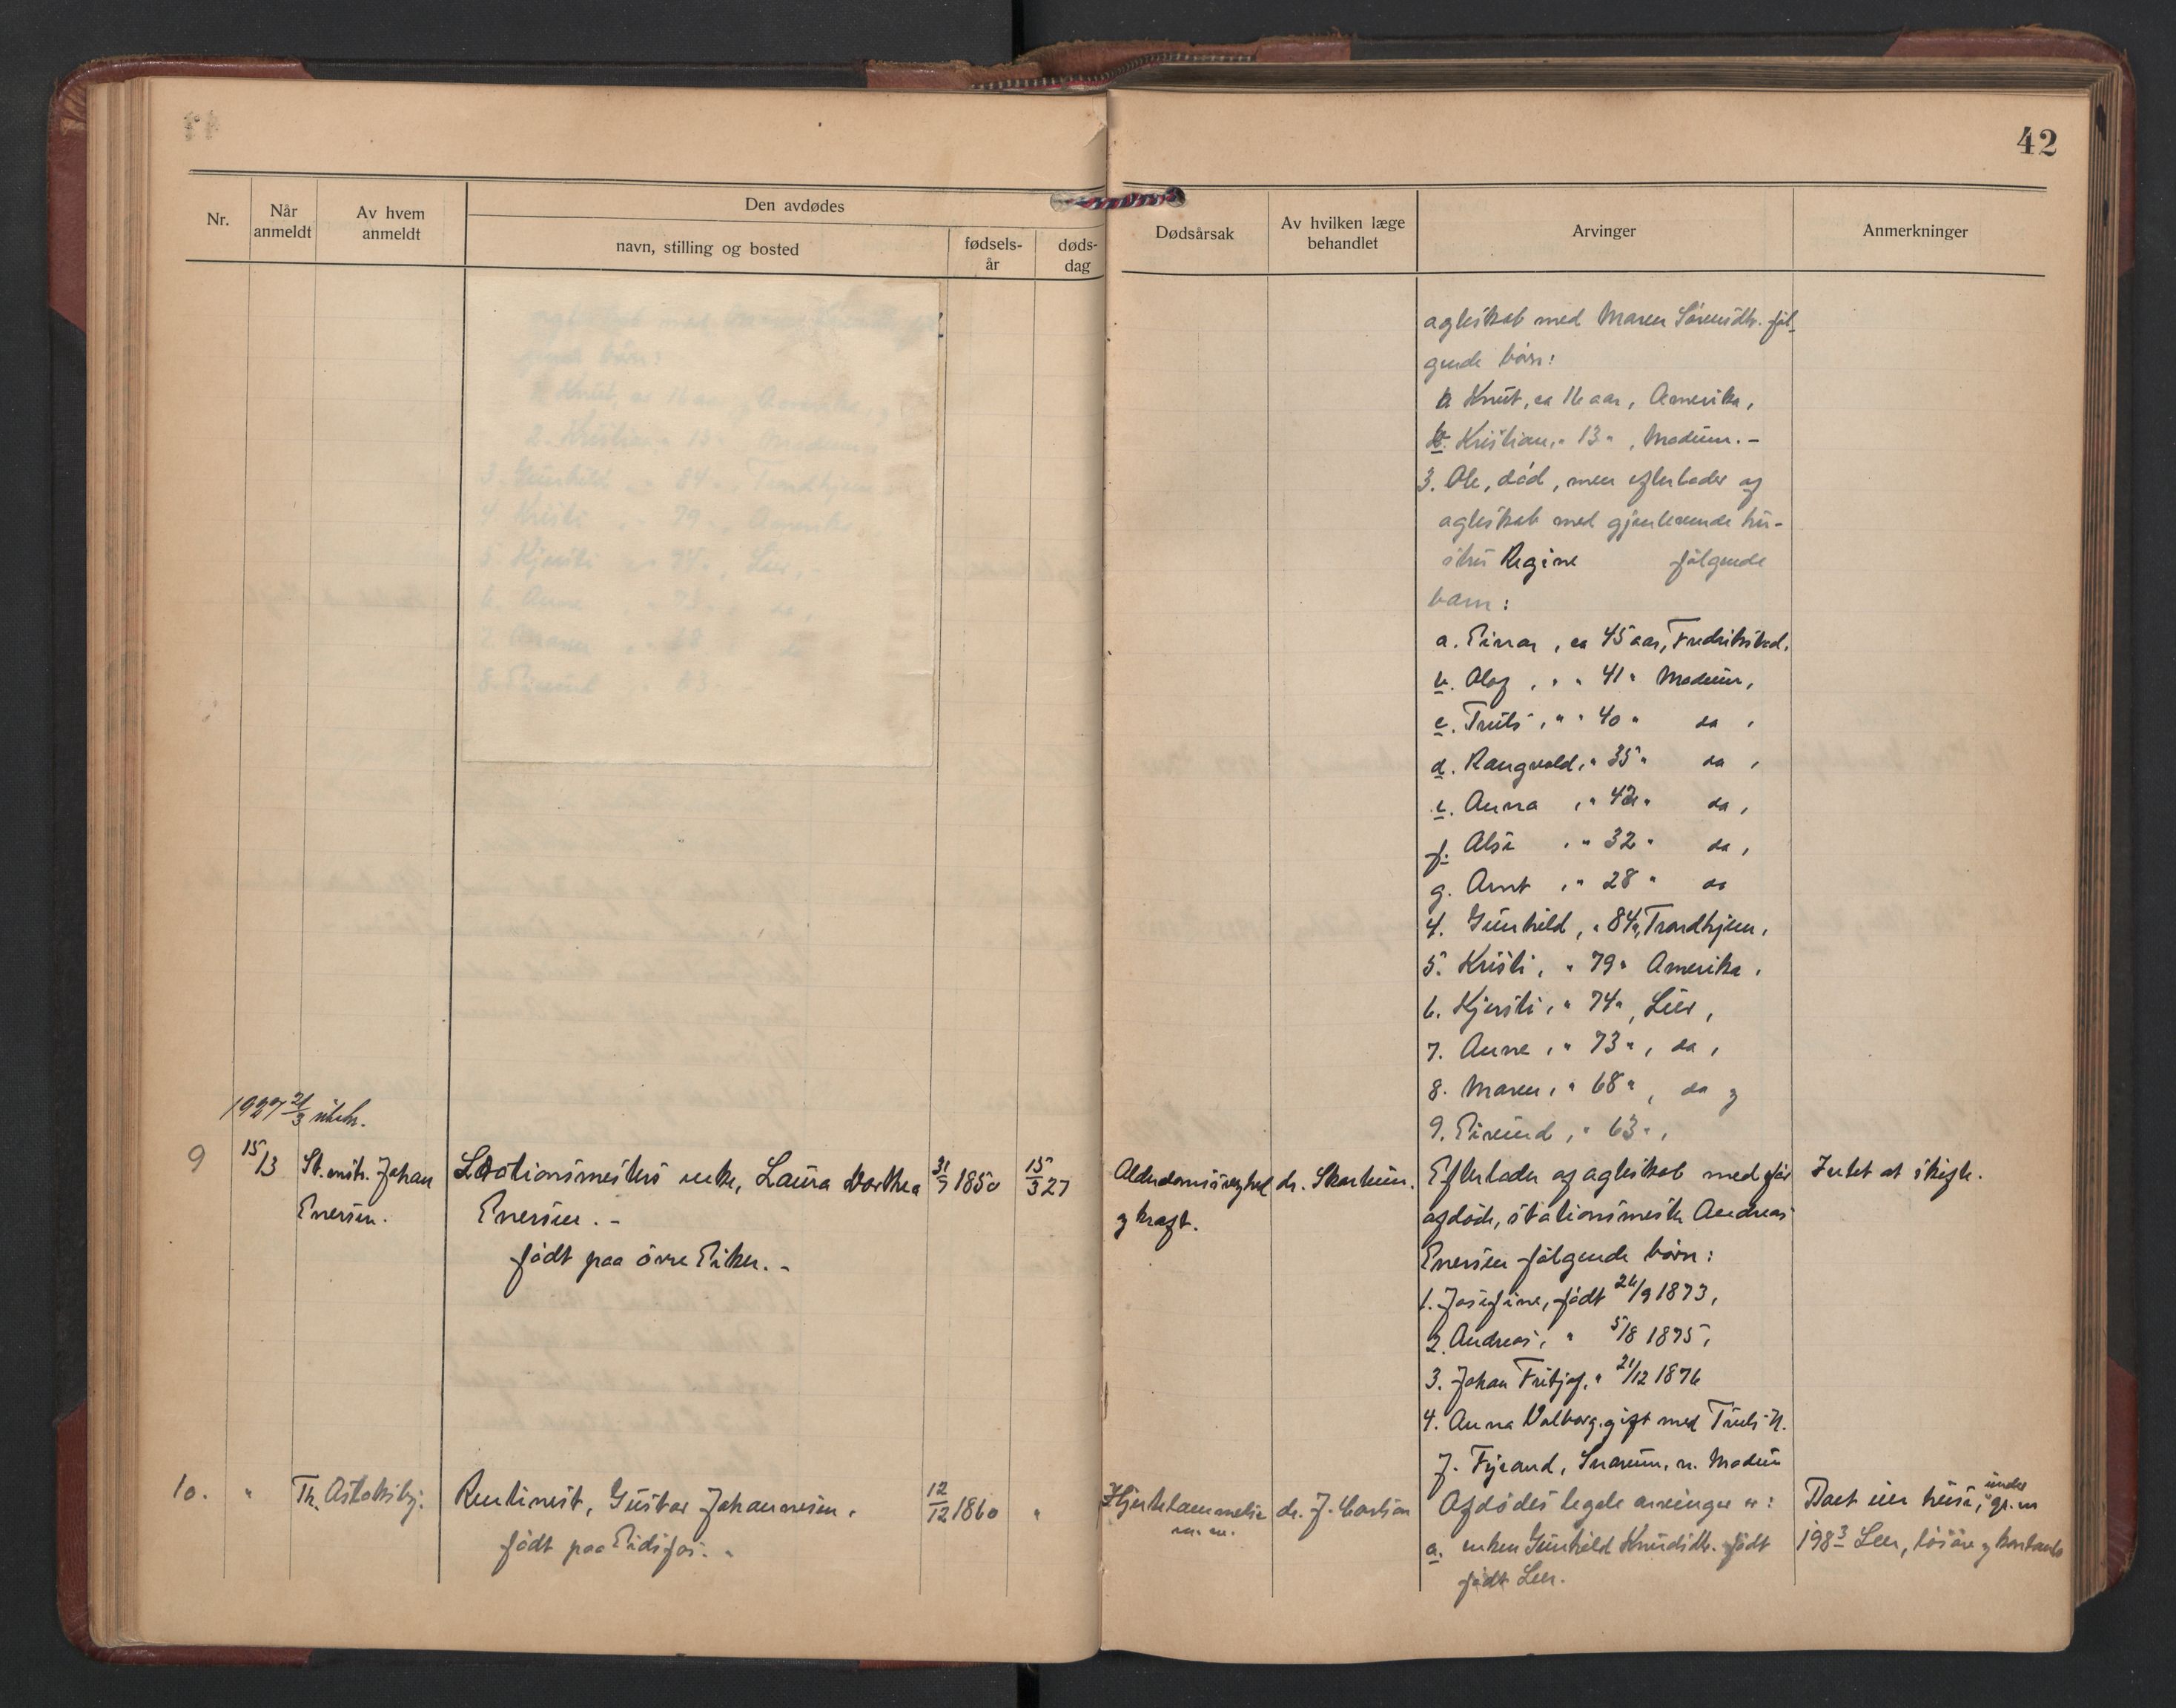 42
Nr.
Når anmeldt
Av hvem anmeldt
Den avdødes
navn, stilling og bosted
fødsels-år
døds-dag
Dødsårsak
Av hvilken læge behandlet
Arvinger
Anmerkninger
agteskab med Maren Sørensdtr. føl-
gende børn:
a Knut, ca 16 aar, Amerika,
b. Kristian, " 13 " , Modum. -
3. Ole, død, men efterlader af
agteskab med gjenlevende hu-
stru Regine følgende
barn:
a. Einar, ca 45 aar, Fredrikstad.
b. Olaf, " " 41 " Modum,
c. Truls, " " 40 " da ,
d. Rangvald, " 35 " da ,
e. Anna , " 42 " da ,
f. Alsi , " 32 " da ,
g. Arnt , " 28 " da
4. Gunhild, " 84 ", Trondhjem,
5. Kristi, " 79 " Amerika,
6. Kjersti, " 74 ", Lier,
7. Anne, " 73 ", da ,
8. Maren, " 68 ", da og
9. Eivind, " 63 ",
1927 21/3
9
15/3
St.mstr. Johan
Enersen.
Stationsmesters enke, Laura Dorthea
Enersen. -
født paa øvre Eiker. -
31/7 1850
15/3 27
Alderdomssvaghet
og kraft.
dr. Skarheim.
Efterlader af agteskab med før
afdøde, stationsmester Andreas
Enersen følgende børn:
1. Josefine, født 26/9 1873,
2. Andreas, " 5/8 1875,
3. Johan Fritjof, " 21/12 1876
4. Anna Valborg, gift med Truls N.
J. Fyrand, Snarum, n. Modum
Intet at skifte.
10.
"
Th. Astoksby.
Rentinist, Gustav Johannesen.
født paa Eidsfos. -
12/12 1860
"
Hjertelammelse
m. m.
dr. J. Carlson
Afdødes legale arvinger er:
a. enken Gunhild Knudsdtr. født
født Lier.
Boet eier huse, under gr. n
198 3 Lier, løsøre og kontant